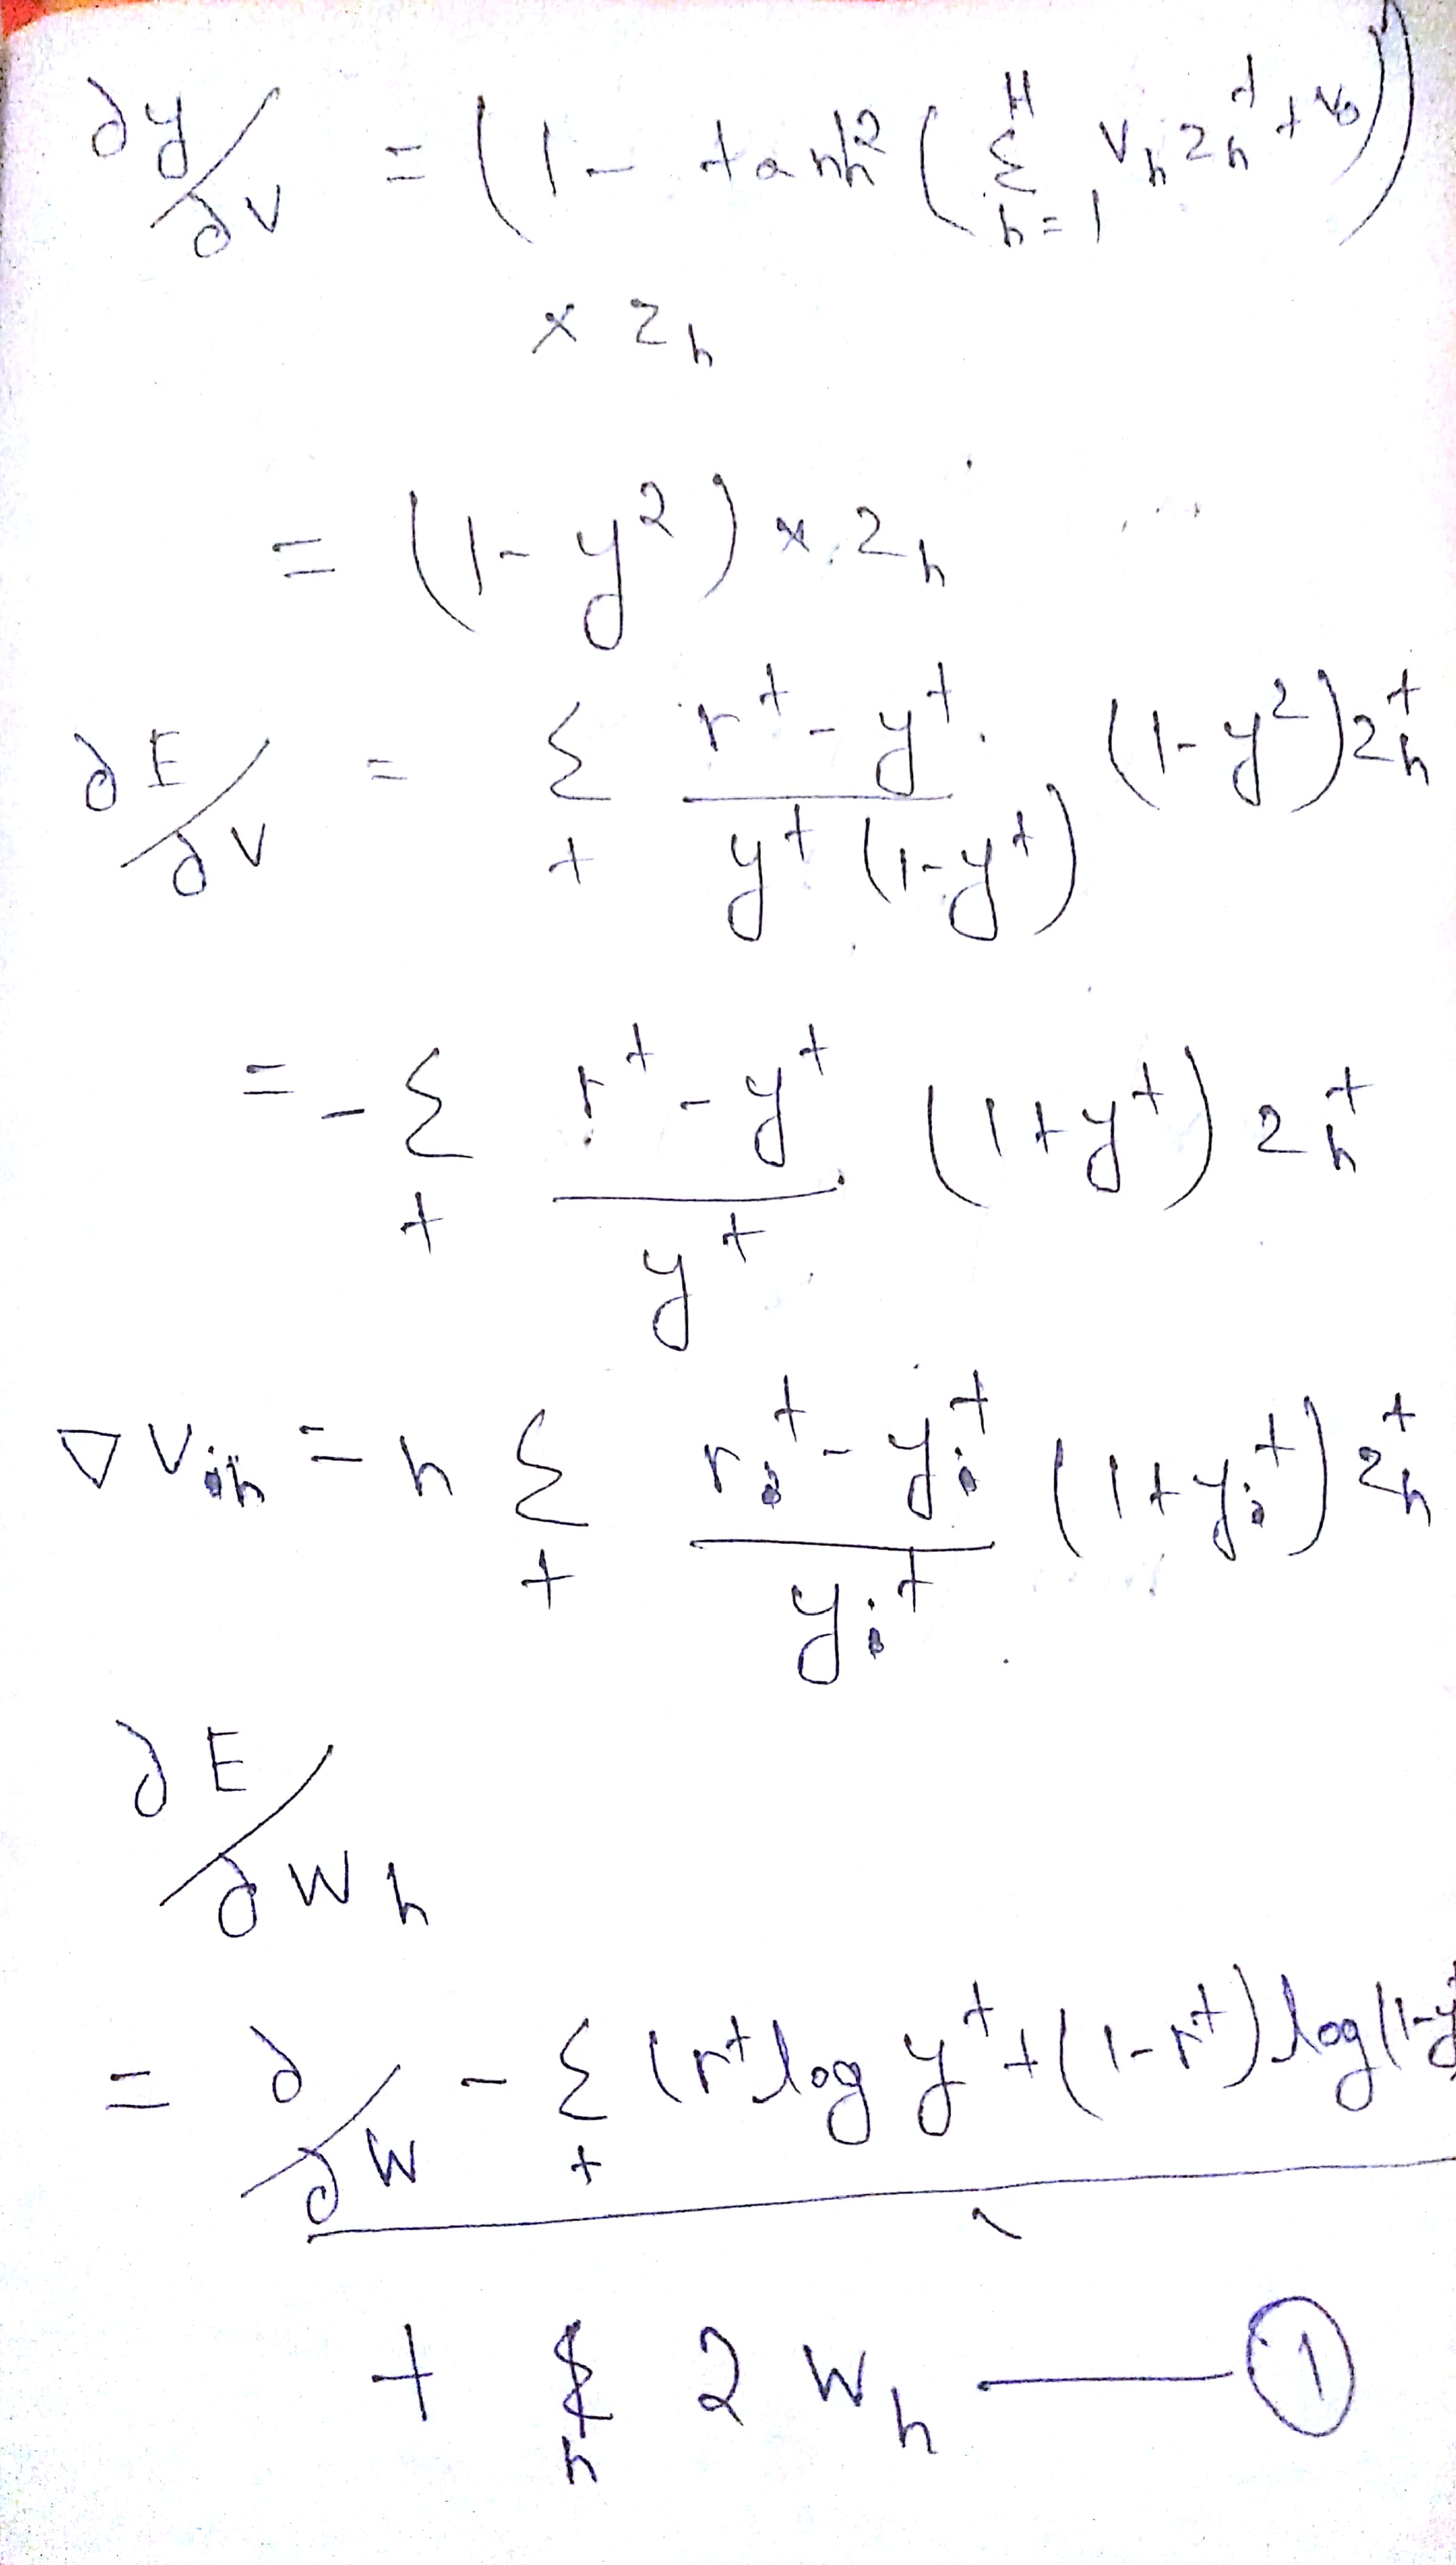 ∂y/∂v = (1 - tanh² ( Σ_{h=1}^{H} v_h z_h^t + v_0 ))
× z_h
= (1 - y²) × z_h
∂E/∂v = Σ_t (r^t - y^t) / (y^t (1 - y^t)) (1 - y²) z_h^t
= - Σ_t (r^t - y^t) / y^t (1 + y^t) z_h^t
∇ v_ih = η Σ_t (r_i^t - y_i^t) / y_i^t (1 + y_i^t) z_h^t
∂E/∂w_h
= ∂/∂w - Σ_t (r^t log y^t + (1 - r^t) log (1 - y
+ Σ_h 2 w_h — ①